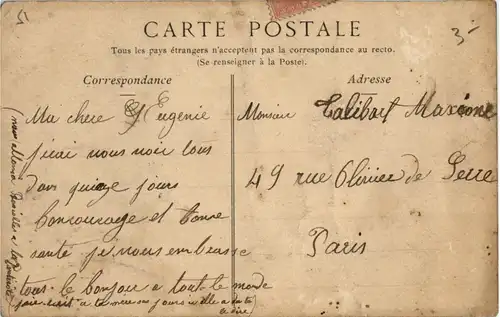 51
3-
CARTE POSTALE
Tous les pays étrangers n'acceptent pas la correspondance au recto.
(Se renseigner à la Poste).
Correspondance
Ma chere Eugenie
j'irai vous voir tous
dans quinze jours
bon courage et bonne
sante je vous embrasse
tous le bonjou a tout le monde
Adresse
Monsieur Talibart
49 rue Olivier de Serre
Paris